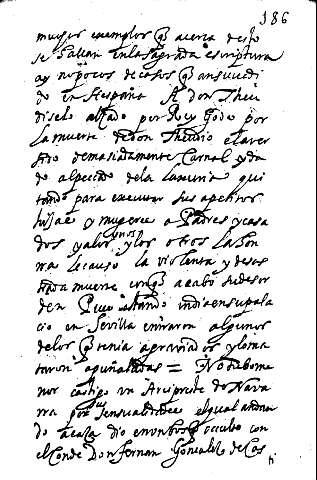 186
muchos exemplos q̃ acerca desto
se hallan en la sagrada escriptura
ay no pocos de casos q̃ an sucedi
do en Hespaña A don Theu
diselo alçado por Rey Godo por
la muerte de don Theudio el aver
sido demasiadamente carnal y da
do al peccado de la luxuria qui
tando para executar sus apetitos
hijas y mugeres a Padres y casa
dos y a los unos y los otros la hon
ra le causo la violenta y desas
trada muerte con q̃ acabo su desor
den Pues estando un dia en su pala
cio en Sevilla entraron algunos
de los q̃ tenia agraviados y lo ma
taron a puñaladas = No hubo me
nor castigo un Arcipreste de Nava
rra por su sensualidad el qual andan
do a caza dio en un bosq̃ occulto con
el Conde Don fernan Gonzalez de Cas
ti